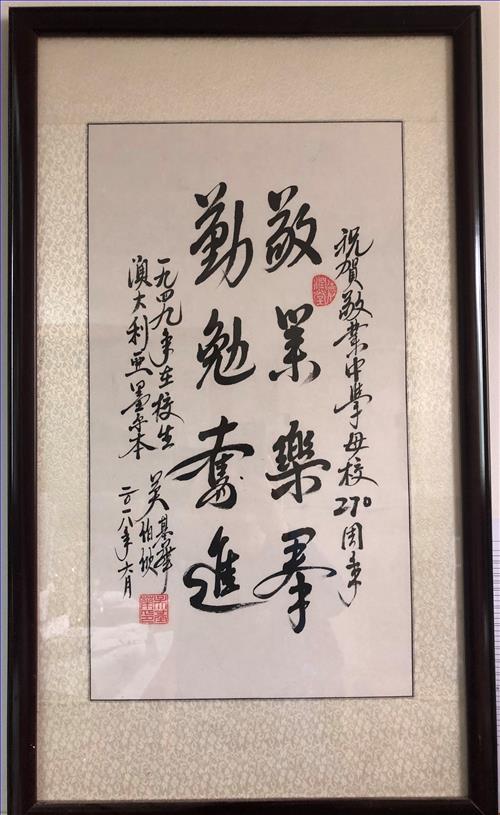 祝賀敬業中學母校270周年
敬業樂羣
勤勉奮進
一九四九年在校生
澳大利亞墨尔本
吴其華
伯欣
二〇一八年六月